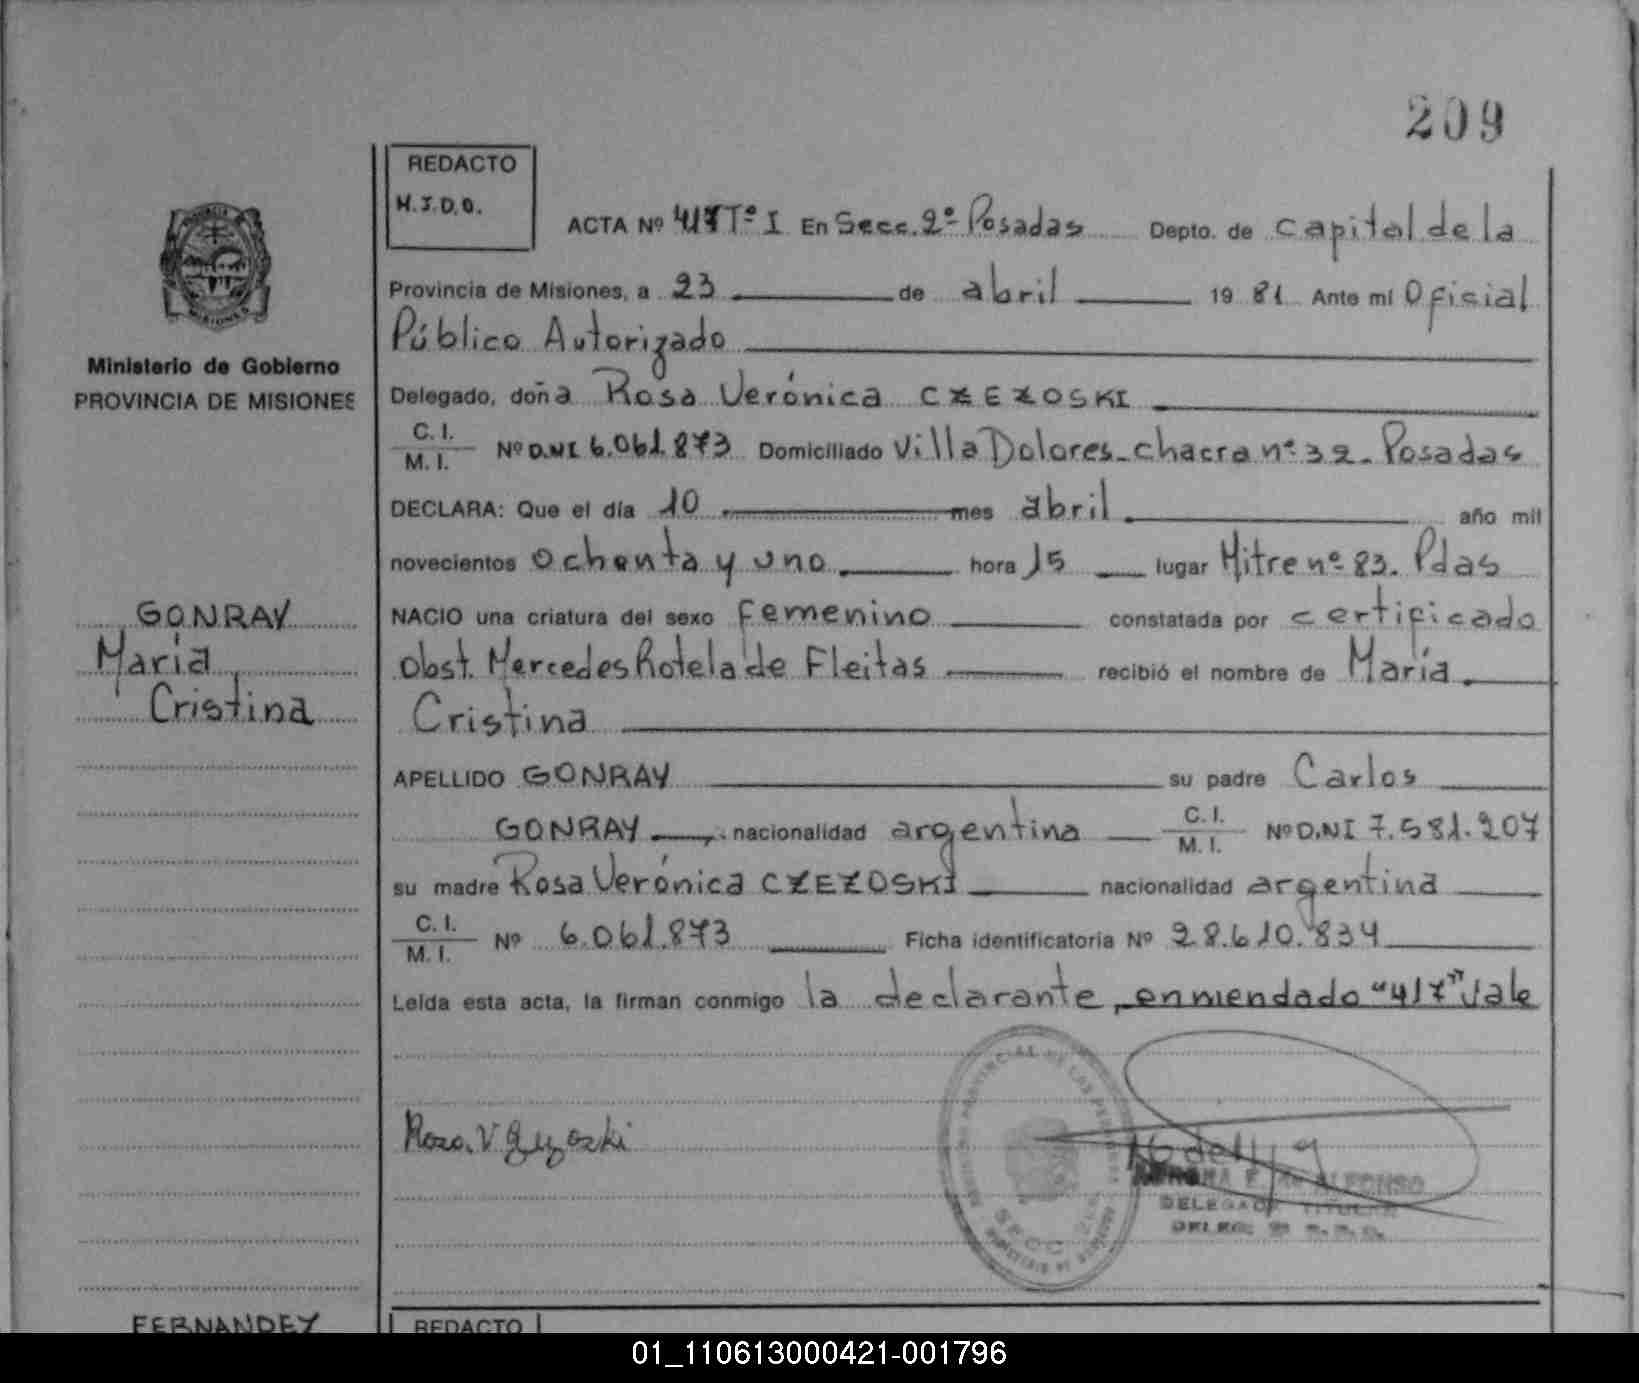 209
REDACTO
M.J.D.O.
ACTA Nº 417 Tº I En Secc. 2º Posadas Depto. de Capital de la
Provincia de Misiones, a 23 de abril 1981 Ante mí Oficial
Público Autorizado
Ministerio de Gobierno
PROVINCIA DE MISIONES
Delegado, doña Rosa Verónica CZEZOSKI
C. I.
M. I. Nº D.NI 6.061.873 Domiciliado Villa Dolores - chacra nº 32 - Posadas
DECLARA: Que el día 10 mes abril año mil
novecientos ochenta y uno hora 15 lugar Mitre nº 83. Pdas
GONRAY
María
Cristina
NACIO una criatura del sexo femenino constatada por certificado
Obst. Mercedes Rotela de Fleitas recibió el nombre de María
Cristina
APELLIDO GONRAY su padre Carlos
GONRAY, nacionalidad argentina C. I.
M. I. Nº D.NI 7.581.207
su madre Rosa Verónica CZEZOSKI nacionalidad argentina
C. I.
M. I. Nº 6.061.873 Ficha identificatoria Nº 28.610.834
Leída esta acta, la firman conmigo la declarante, enmendado "417" Vale
Rosa. V
ALFONSO
DELEGADA TITULAR
SECC
FERNANDEZ
REDACTO
01_110613000421-001796